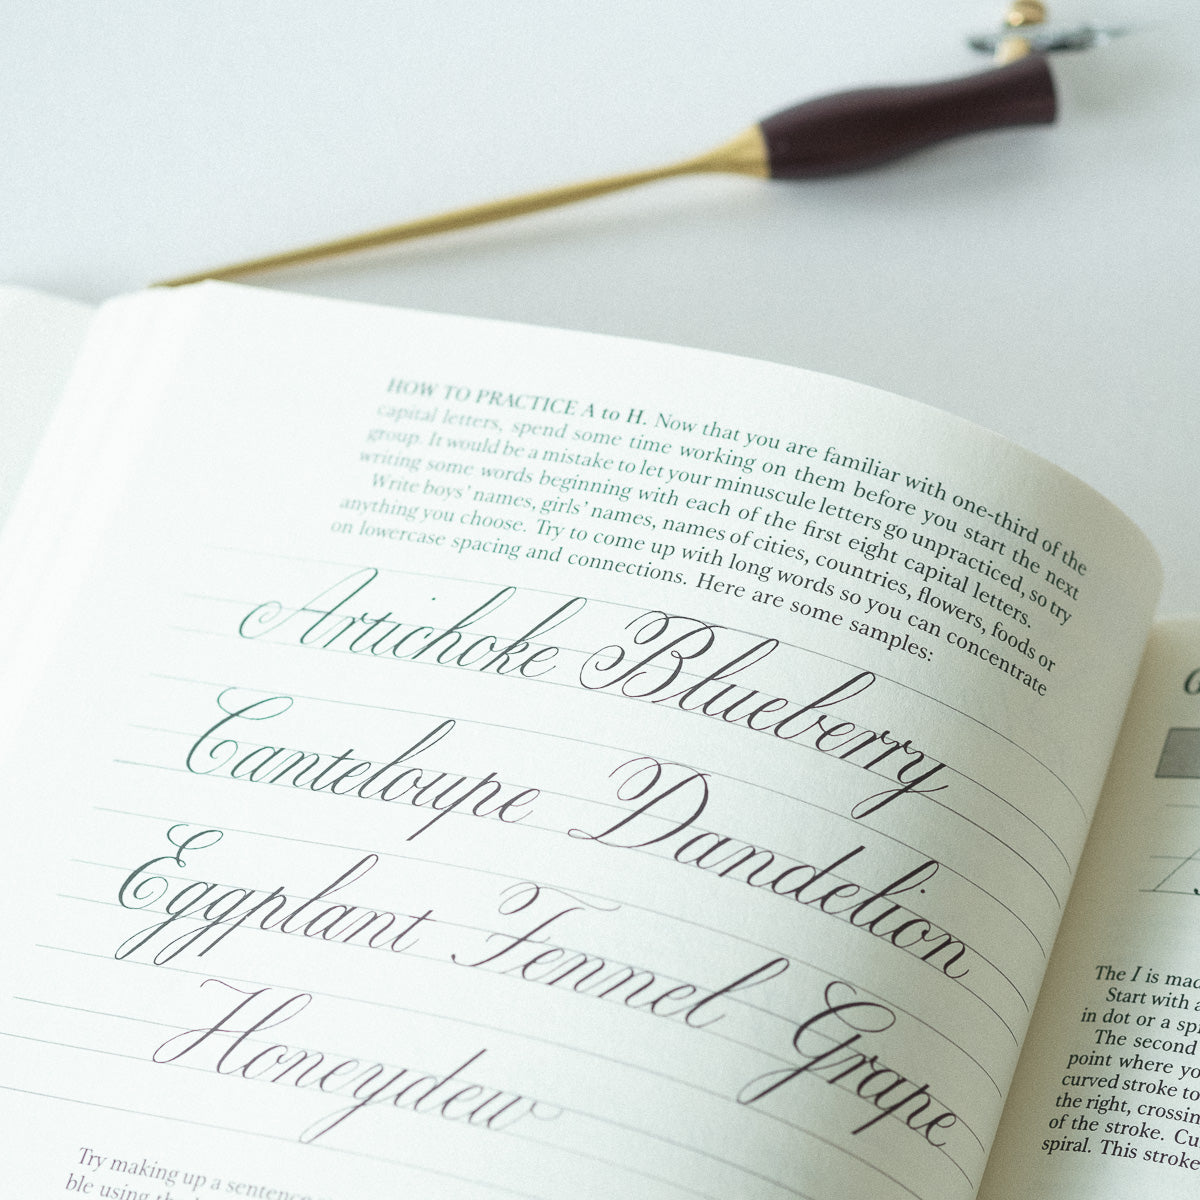 HOW TO PRACTICE A to H. Now that you are familiar with one-third of the
capital letters, spend some time working on them before you start the next
group. It would be a mistake to let your minuscule letters go unpracticed, so try
writing some words beginning with each of the first eight capital letters.
Write boys' names, girls' names, names of cities, countries, flowers, foods or
anything you choose. Try to come up with long words so you can concentrate
on lowercase spacing and connections. Here are some samples:
Artichoke Blueberry
Canteloupe Dandelion
Eggplant Fennel Grape
Honeydew
Try making up a sentence
ble using the
The I is mad
Start with a
in dot or a spi
The second
point where yo
curved stroke to
the right, crossin
of the stroke. Cu
spiral. This stroke